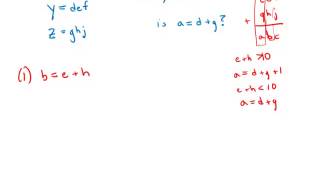 y = def
z = ghj
is a = d+g?
+ ghj
abc
(1) b = e + h
e+h > 10
a = d+g+1
e+h < 10
a = d+g